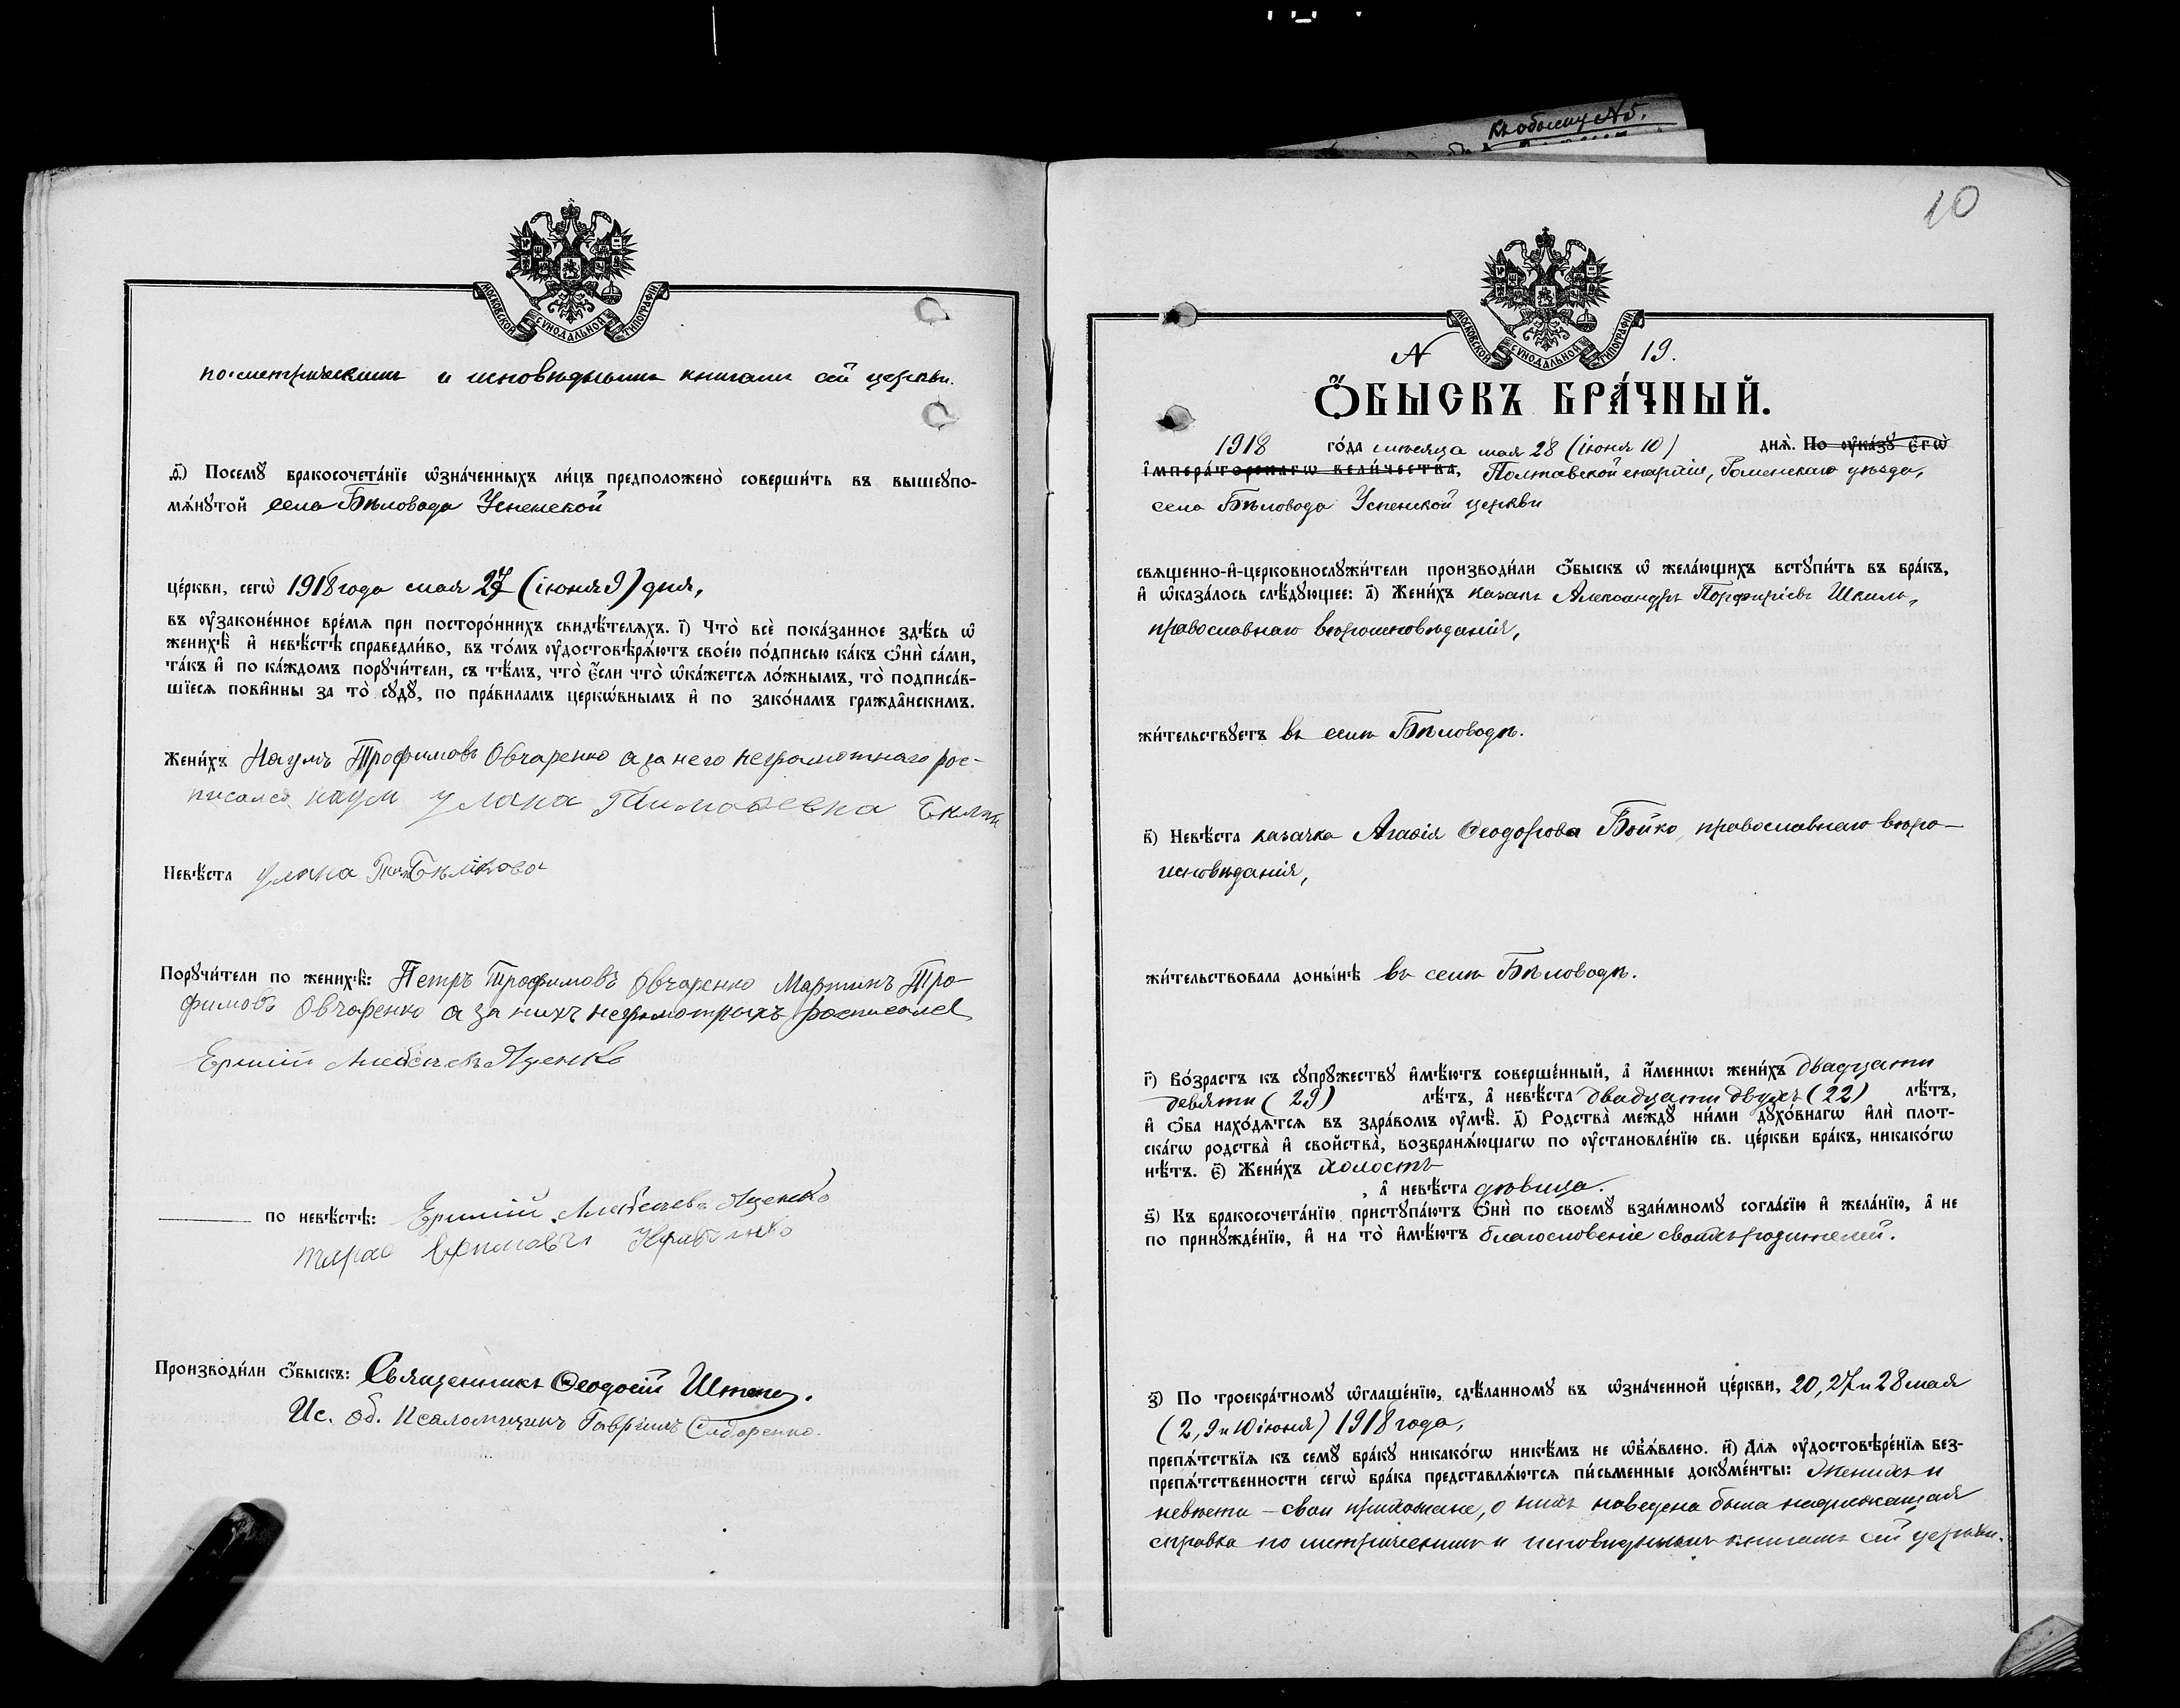 къ обыску N5.
10
МОСКОВСКОЙ СѴНОДАЛЬНОЙ ТИПОГРАФІИ
по метрическимъ и исповѣднымъ книгамъ сей церкви.
ѳ҃) Посемꙋ бракосочета́нїе ѡ҆зна́ченныхъ ли́цъ предположено̀ соверши́ть въ вышеꙋпо-
мѧ́нꙋтой села Бѣловода Успенской
це́ркви, сегѡ̀ 1918 года мая 27 (іюня 9) дня,
въ ᲂу҆законе́нное вре́мѧ при посторо́ннихъ свидѣ́телѧхъ. і҃) Что̀ всѐ пока́занное здѣ́сь ѡ҆
женихѣ̀ и҆ невѣ́стѣ справедли́во, въ то́мъ ᲂу҆достовѣрѧ́ютъ свое́ю по́дписью ка́къ ѻ҆нѝ са́ми,
та́къ и҆ по ка́ждомъ порꙋчи́тели, съ тѣ́мъ, что̀ є҆́сли что̀ ѡ҆ка́жетсѧ ло́жнымъ, то̀ подписа́в-
шїесѧ пови́нны за то̀ сꙋдꙋ̀, по пра́виламъ церкѡ́внымъ и҆ по зако́намъ гражда́нскимъ.
Жени́хъ Наумъ Трофимовъ Овчаренко а за него неграмотнаго рос-
писалса наум улана Тимоѳевна
Невѣ́ста улана Бѣликова
Порꙋчи́тели по женихѣ̀: Петръ Трофимовъ Овчаренко Мартинъ Тро-
фимовъ Овчаренко а за нихъ неграмотныхъ росписался
Ермий Алексѣевъ Яценко
по невѣ́стѣ: Ермий Алексѣевъ Яценко
тарас Кравченко
Производи́ли ѻ҆́быскъ: Священникъ Ѳеодосій
Ис. об. Псаломщика Гавріилъ Сидоренко.
МОСКОВСКОЙ СѴНОДАЛЬНОЙ ТИПОГРАФІИ
N 19.
Ѻ҆́БЫСКЪ БРА́ЧНЫЙ.
1918 го́да мѣсяца мая 28 (іюня 10) днѧ̀. По ᲂу҆ка́зꙋ Є҆гѡ̀
И҆мпера́торскагѡ вели́чества, Полтавской епархіи, Роменскаго уѣзда,
села Бѣловода Успенской церкви
свѧщенно-и҆-церковнослꙋжи́тели производи́ли ѻ҆́быскъ ѡ҆ жела́ющихъ встꙋпи́ть въ бра́къ,
и҆ ѡ҆каза́лось слѣ́дꙋющее: а҃) Жени́хъ казакъ Александръ Порфиріевъ Шкиль,
православнаго вѣроисповѣданія,
жи́тельствꙋетъ въ селѣ Бѣловодѣ.
в҃) Невѣ́ста казачка Агаѳія Ѳеодорова Бойко, православнаго вѣро-
исповѣданія,
жи́тельствовала доны́нѣ въ селѣ Бѣловодѣ.
г҃) Во́зрастъ къ сꙋпрꙋжествꙋ и҆мѣ́ютъ соверше́нный, а҆ и҆́меннѡ: жени́хъ двадцати
девяти (29) лѣ́тъ, а҆ невѣ́ста двадцати двухъ (22) лѣ́тъ,
и҆ ѻ҆́ба нахо́дѧтсѧ въ здра́вомъ ᲂу҆мѣ̀. д҃) Родства̀ междꙋ̀ ни́ми дꙋхо́внагѡ и҆лѝ плот-
ска́гѡ родства̀ и҆ свойства̀, возбранѧ́ющагѡ по ᲂу҆становле́нїю св. це́ркви бра́къ, никако́гѡ
нѣ́тъ. є҃) Жени́хъ холостъ
, а҆ невѣ́ста дѣвица.
ѕ҃) Къ бракосочета́нїю пристꙋпа́ютъ ѻ҆нѝ по своемꙋ̀ взаи́мномꙋ согла́сїю и҆ жела́нїю, а҆ не
по принꙋжде́нїю, и҆ на то̀ и҆мѣ́ютъ благословеніе своихъ родителей.
з҃) По троекра́тномꙋ ѡ҆глаше́нїю, сдѣ́ланномꙋ въ ѡ҆зна́ченной це́ркви, 20, 27 и 28 мая
(2, 9 и 10 іюня) 1918 года,
препѧ́тствїѧ къ семꙋ̀ бра́кꙋ никако́гѡ никѣ́мъ не ѡ҆б̾ѧ́влено. и҃) Длѧ ᲂу҆достовѣре́нїѧ без-
препѧ́тственности сегѡ̀ бра́ка представлѧ́ютсѧ пи́сьменные докꙋме́нты: Женихъ и
невѣста – свои прихожане, о нихъ наведена была надлежащая
справка по метрическимъ и исповѣднымъ книгамъ сей церкви.